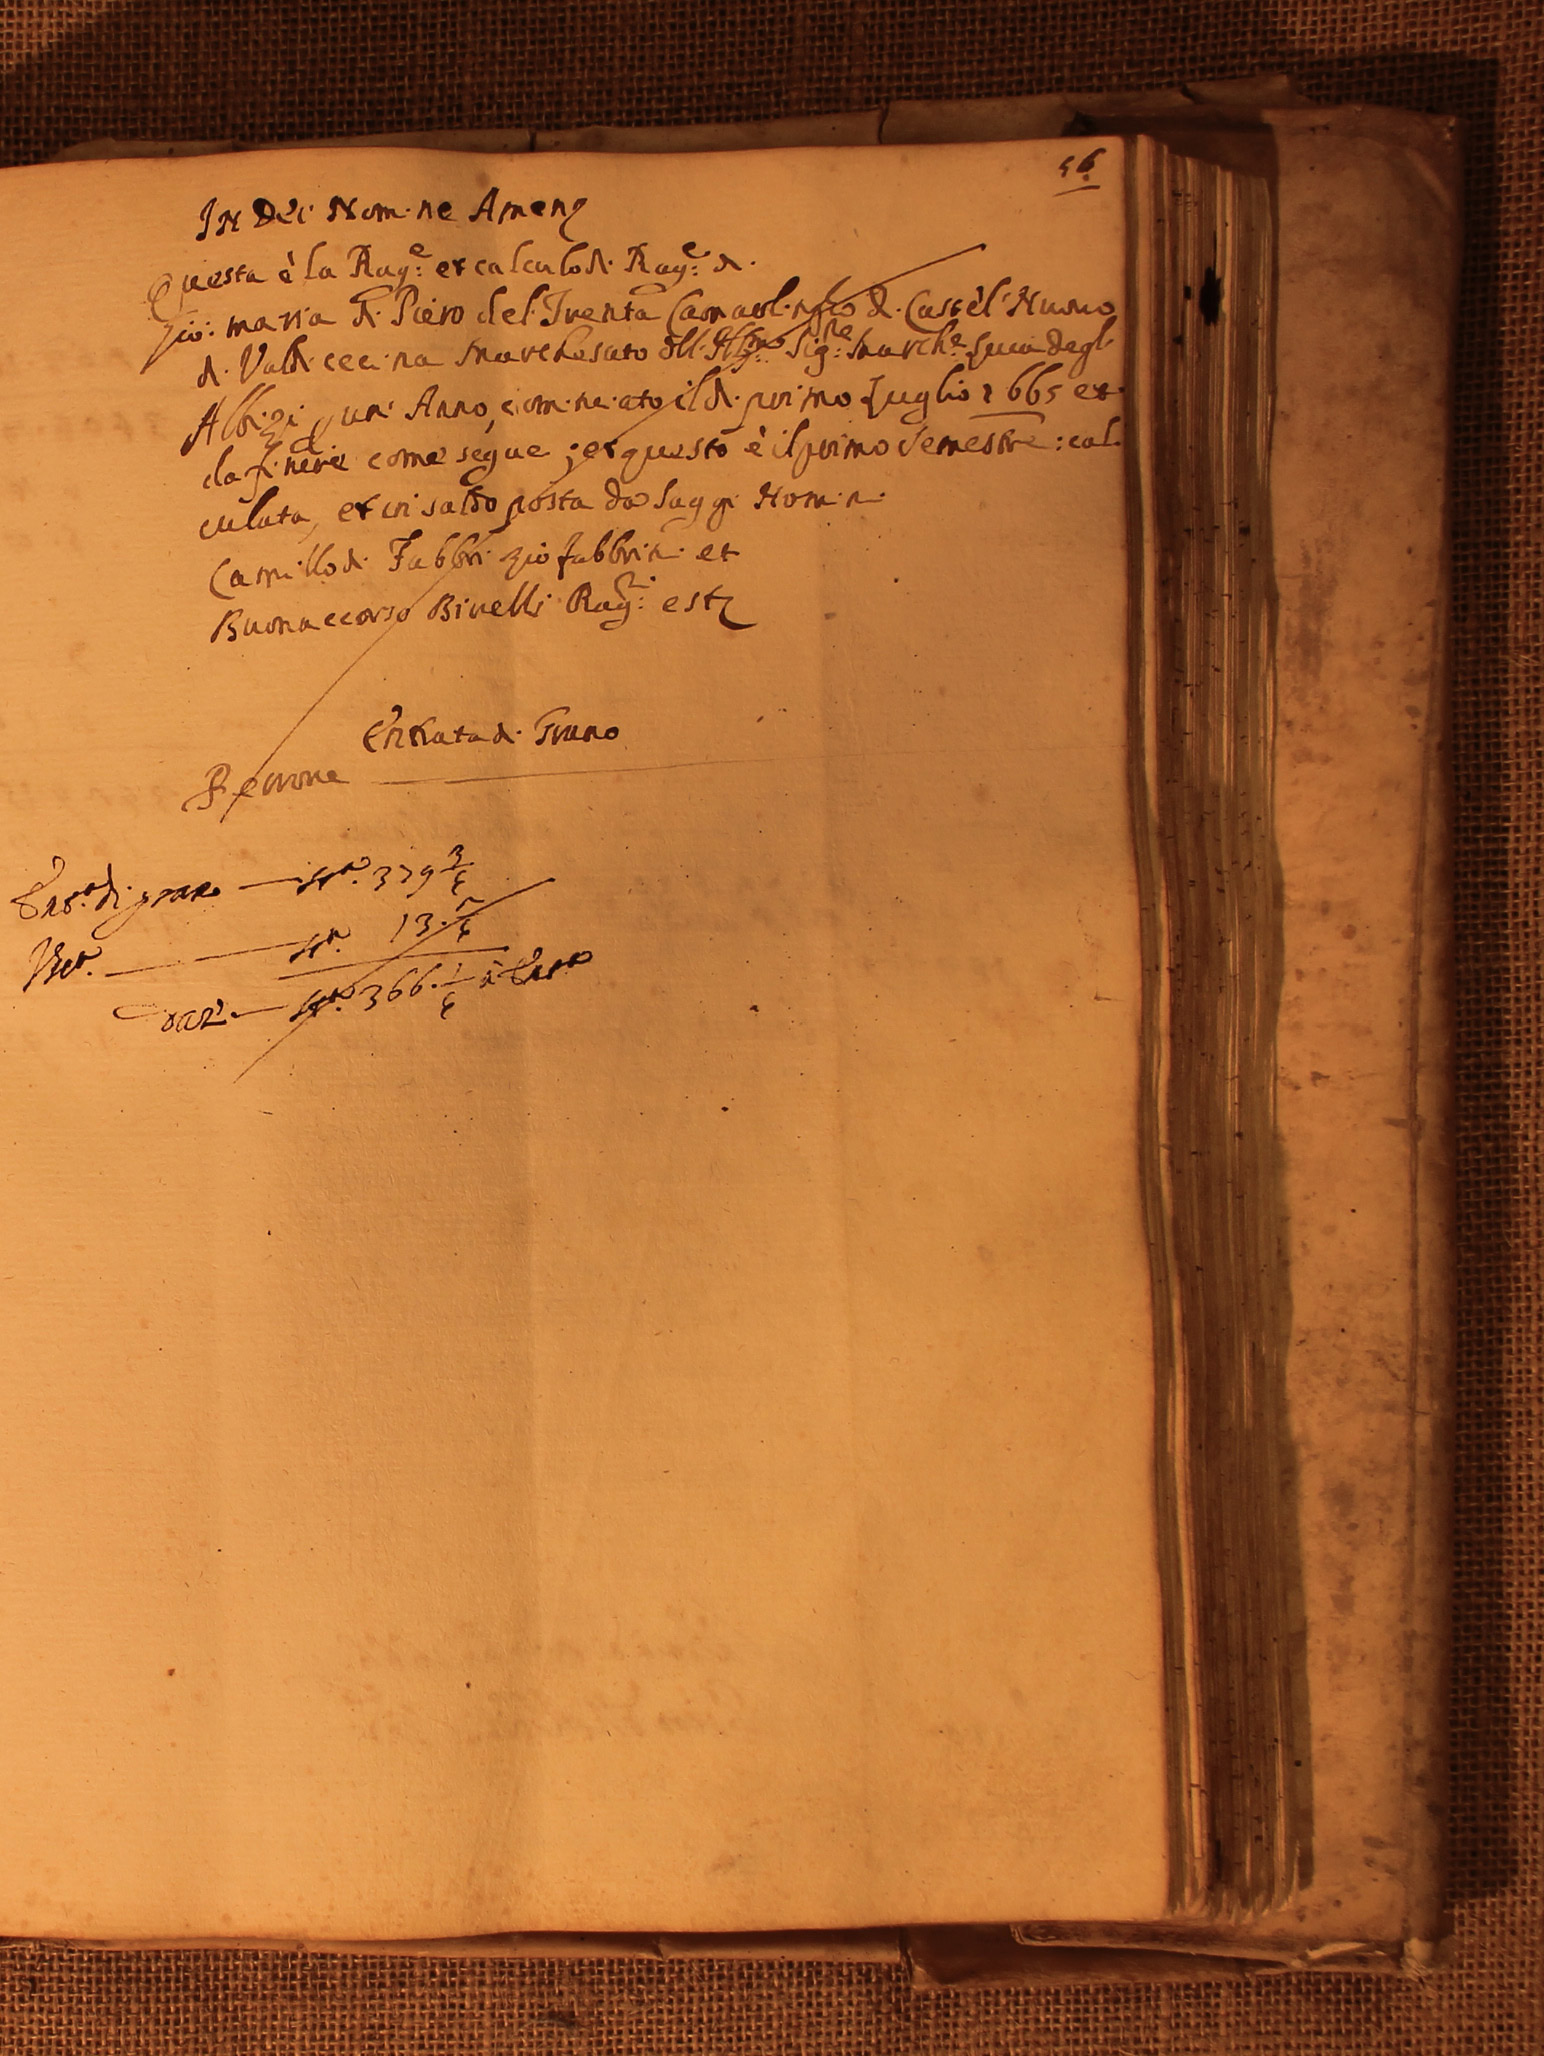 56
In Dei Nomine Amen
Questa è la Rag.e et calculo di Rag.e di
Gio: maria di Piero del Trenta Camarlingho di Castel Nuovo
di Valdi cecina Marchesato dell Ill.mo Sig.re March.e Luca degl
Albizi p un Anno, cominciato il di primo Luglio 1665 et
da finire come segue ; et questo è il primo Semestre : cal
culata, et in saldo posta da Saggi Homini
Camillo di Fabbri Gio fabbrini et
Buonaccorso Bivelli Rag.ri est
Entrata di Grano
Ent.a di grano — st.a 379 3/4
Usc.a — st.a 13.
st.a 366. à Ent.a